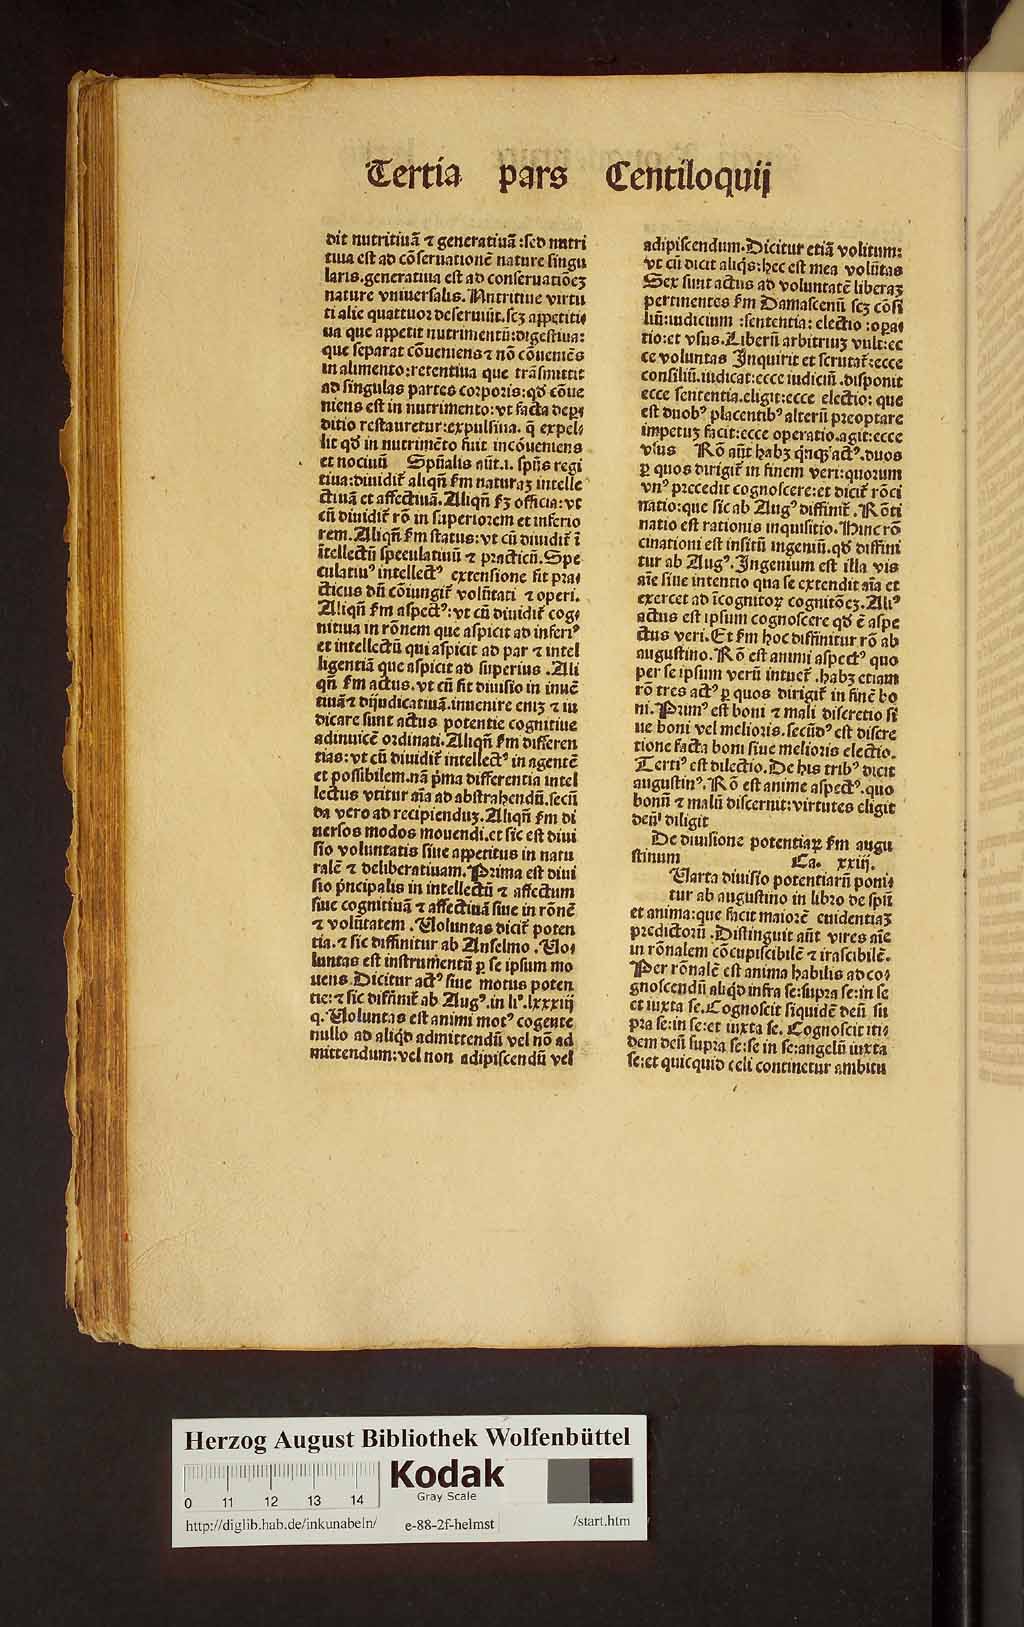 Tertia pars Centiloquij
dit nutritiuã ⁊ generatiuã :sed nutri
tiua est ad cõseruationẽ nature singu
laris.generatiua est ad conseruatiõeꝫ
nature vniuersalis. Nutritiue virtu
ti alie quattuor deseruiũt.scꝫ appetiti⸗
ua que appetit nutrimentũ:digestiua:
que separat cõueniens ⁊ nõ cõueniẽs
in alimento:retentiua que trãsmittit
ad singulas partes corporis:qđ cõue
niens est in nutrimento:vt facta deper⸗
ditio restauretur:expulsiua. q̃ expel⸗
lit qđ in nutrimẽto fuit incõueniens
et nociuũ Spũalis aũt.i. spũs regi
tiua:diuidit̃ aliqñ ẜm naturaꝫ intelle
ctiuã et affectiuã. Aliqñ ẜꝫ officia:vt
cũ diuidit̃ rõ in superiorem et inferio
rem. Aliqñ ẜm status:vt cũ diuidit̃ ĩ
ĩtellectũ speculatiuũ ⁊ practicũ. Spe
culatiuꝰ intellectꝰ extensione fit pra⸗
cticus dñ cõiungit̃ volũtati ⁊ operi.
Aliqñ ẜm aspectꝰ:vt cũ diuidit̃ cog⸗
nitiua in rõnem que aspicit ad inferiꝰ
et intellectũ qui aspicit ad par ⁊ intel
ligentiã que aspicit ad superius .Ali
qñ ẜm actus.vt cũ fit diuisio in inuẽ
tiuã ⁊ dijudicatiuã.inuenire eniꝫ ⁊ iu
dicare sunt actus potentie cognitiue
adinuicẽ ordinati. Aliqñ ẜm differen
tias:vt cũ diuidit̃ intellectꝰ in agentẽ
et possibilem.nã p̃ma differentia intel
lectus vtitur aĩa ad abstrahendũ.secũ
da vero ad recipienduꝫ. Aliqñ ẜm di
uersos modos mouendi.et sic est diui
sio voluntatis siue appetitus in natu
ralẽ ⁊ deliberatiuam. Prima est diui
sio p̃ncipalis in intellectũ ⁊ affectum
siue cognitiuã ⁊ affectiuã siue in rõnẽ
⁊ volũtatem . Uoluntas dicit̃ poten
tia.⁊ sic diffinitur ab Anselmo . Uo⸗
luntas est instrumentũ ꝑ se ipsum mo
uens. Dicitur actꝰ siue motus poten
tie:⁊ sic diffinit̃ ab Augꝰ.in liꝰ.lxxxiij
q. Uoluntas est animi motꝰ cogente
nullo ad aliqđ admittendũ vel nõ ad
mittendum:vel non adipiscendũ vel
adipiscendum. Dicitur etiã volitum:
vt cũ dicit aliqs̃:hec est mea volũtas
Sex sunt actus ad voluntatẽ liberaꝫ
pertinentes ẜm Damascenũ scꝫ cõsi
liũ:iudicium :sententia: electio :oꝑa⸗
tio:et vsus. Liberũ arbitriuꝫ vult:ec
ce voluntas Inquirit et scrutat̃:ecce
consiliũ.iudicat:ecce iudiciũ .disponit
ecce sententia.eligit:ecce electio: que
est duobꝰ placentibꝰ alterũ preoptare
impetuꝫ facit:ecce operatio.agit:ecce
vsus Rõ aũt habꝫ q̃nqꝫ actꝰ.duos
ꝑ quos dirigit̃ in finem veri:quorum
vnꝰ precedit cognoscere:et dicit̃ rõci
natio:que sic ab Augꝰ diffinit̃ . Rõti
natio est rationis inquisitio. Hinc rõ
cinationi est insitũ ingeniũ.qđ diffini
tur ab Augꝰ. Ingenium est illa vis
aĩe siue intentio qua se extendit aĩa et
exercet ad ĩcognitoꝝ cognitõeꝫ. Aliꝰ
actus est ipsum cognoscere qđ ẽ aspe
ctus veri. Et ẜm hoc diffinitur rõ ab
augustino. Rõ est animi aspectꝰ quo
per se ipsum verũ intuet̃ .habꝫ etiam
rõ tres actꝰ ꝑ quos dirigit̃ in finẽ bo
ni. Primꝰ est boni ⁊ mali discretio si
ue boni vel melioris.secũdꝰ est discre
tione facta boni siue melioris electio.
Tertiꝰ est dilectio. De his tribꝰ dicit
augustinꝰ. Rõ est anime aspectꝰ.quo
bonũ ⁊ malũ discernit:virtutes eligit
deũ diligit
De diuisione potentiaꝝ ẜm augu
stinum Ca. xxiij.
Uarta diuisio potentiarũ poni⸗
tur ab augustino in libro de spũ
et anima:que facit maiorẽ euidentiaꝫ
predictorũ . Distinguit aũt vires aĩe
in rõnalem cõcupiscibilẽ ⁊ irascibilẽ.
Per rõnalẽ est anima habilis ad co⸗
gnoscendũ aliqđ infra se:supra se:in se
et iuxta se. Cognoscit siquidẽ deũ su
pra se:in se:et iuxta se. Cognoscit iti⸗
dem deũ supra se:se in se:angelũ iuxta
se:et quicquid celi continetur ambitu
Herzog August Bibliothek Wolfenbüttel
0 11 12 13 14
Kodak
Gray Scale
http://diglib.hab.de/inkunabeln/ e-88-2f-helmst /start.htm